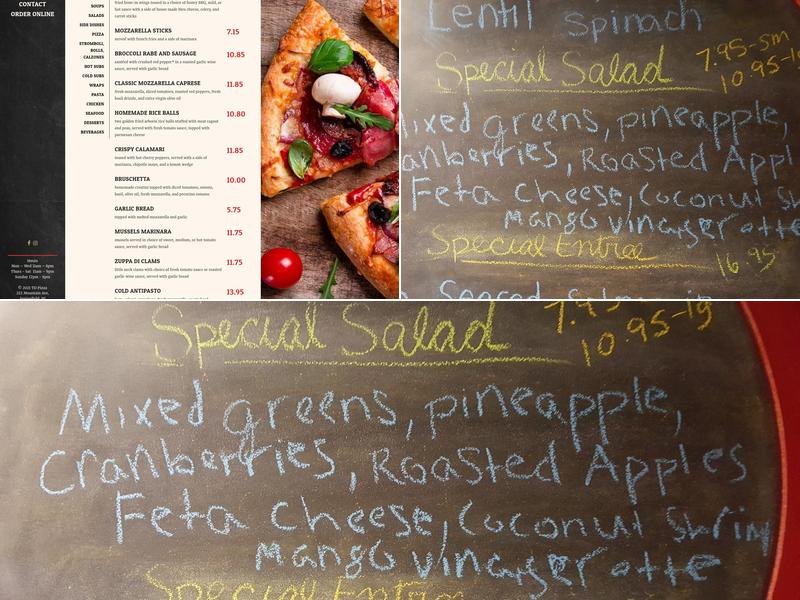 CONTACT
ORDER ONLINE
SOUPS
SALADS
SIDE DISHES
PIZZA
STROMBOLI,
ROLLS,
CALZONES
HOT SUBS
COLD SUBS
WRAPS
PASTA
CHICKEN
SEAFOOD
DESSERTS
BEVERAGES
Hours
fried bone-in wings tossed in a choice of honey BBQ, mild, or
hot sauce with a side of house made bleu cheese, celery, and
carrot sticks
MOZZARELLA STICKS 7.15
served with french fries and a side of marinara
BROCCOLI RABE AND SAUSAGE 10.85
sauce, served with garlic bread
CLASSIC MOZZARELLA CAPRESE 11.85
fresh mozzarella, sliced tomatoes, roasted red peppers, fresh
basil drizzle, and extra virgin olive oil
HOMEMADE RICE BALLS 10.80
two golden fried arborio rice balls stuffed with meat ragout
and peas, served with fresh tomato sauce, topped with
parmesan cheese
CRISPY CALAMARI 11.85
tossed with hot cherry peppers, served with a side of
marinara, chipotle mayo, and a lemon wedge
BRUSCHETTA 10.00
homemade crostini topped with diced tomatoes, onions,
basil, olive oil, fresh mozzarella, and pecorino romano
GARLIC BREAD 5.75
topped with melted mozzarella and garlic
MUSSELS MARINARA 11.75
mussels served in choice of sweet, medium, or hot tomato
sauce, served with garlic bread
ZUPPA DI CLAMS 11.75
little neck clams with choice of fresh tomato sauce or roasted
garlic wine sauce, served with garlic bread
COLD ANTIPASTO 13.95
Lentil Spinach
Special Salad 7.95-sm
10.95-lg
ixed greens, pineapple,
anberries, Roasted Appl
Feta cheese, Coconut Sh
mango vinaigerotte
Special Entree 16.95
Special Salad
10.95-lg
Mixed greens, pineapple,
Cranberries, Roasted Apples
Feta cheese, Coconut Shrim
mango vinaigerotte
Special Entree